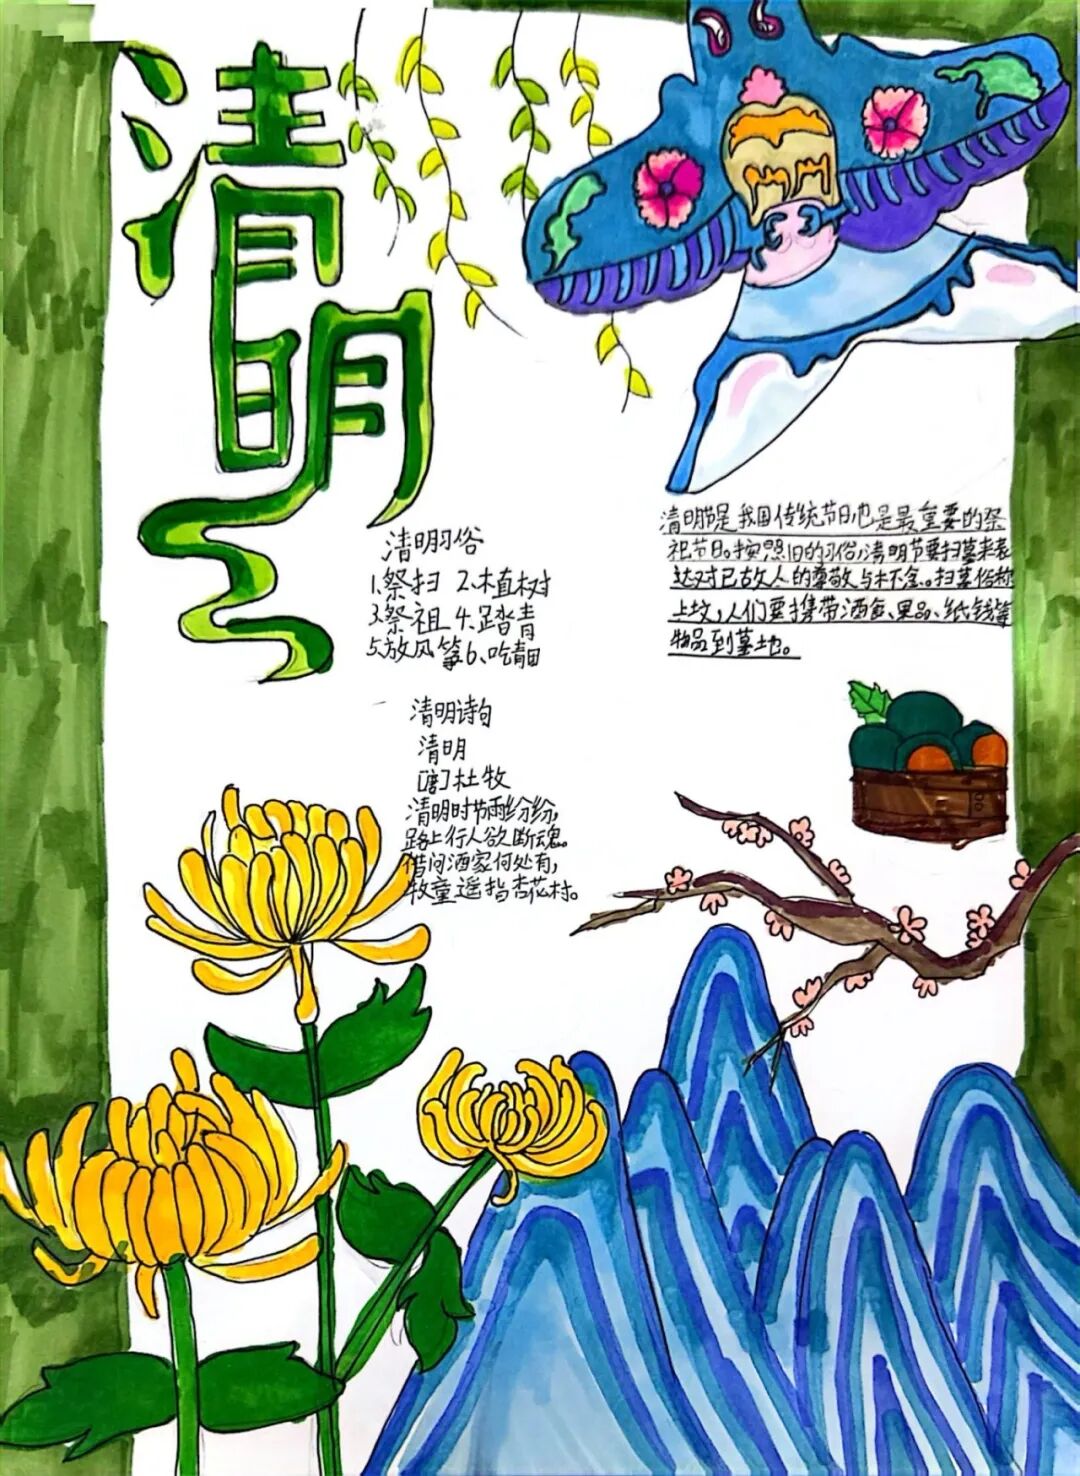 清明
清明习俗
1.祭扫 2.植树
3.祭祖 4.踏青
5.放风筝 6、吃青团
清明节是我国传统节日也是最重要的祭
祀节日。按照旧的习俗,清明节要扫墓来表
达对已故人的尊敬与怀念。扫墓俗称
上坟,人们要携带酒食、果品、纸钱等
物品到墓地。
清明诗句
清明
[唐]杜牧
清明时节雨纷纷,
路上行人欲断魂。
借问酒家何处有,
牧童遥指杏花村。